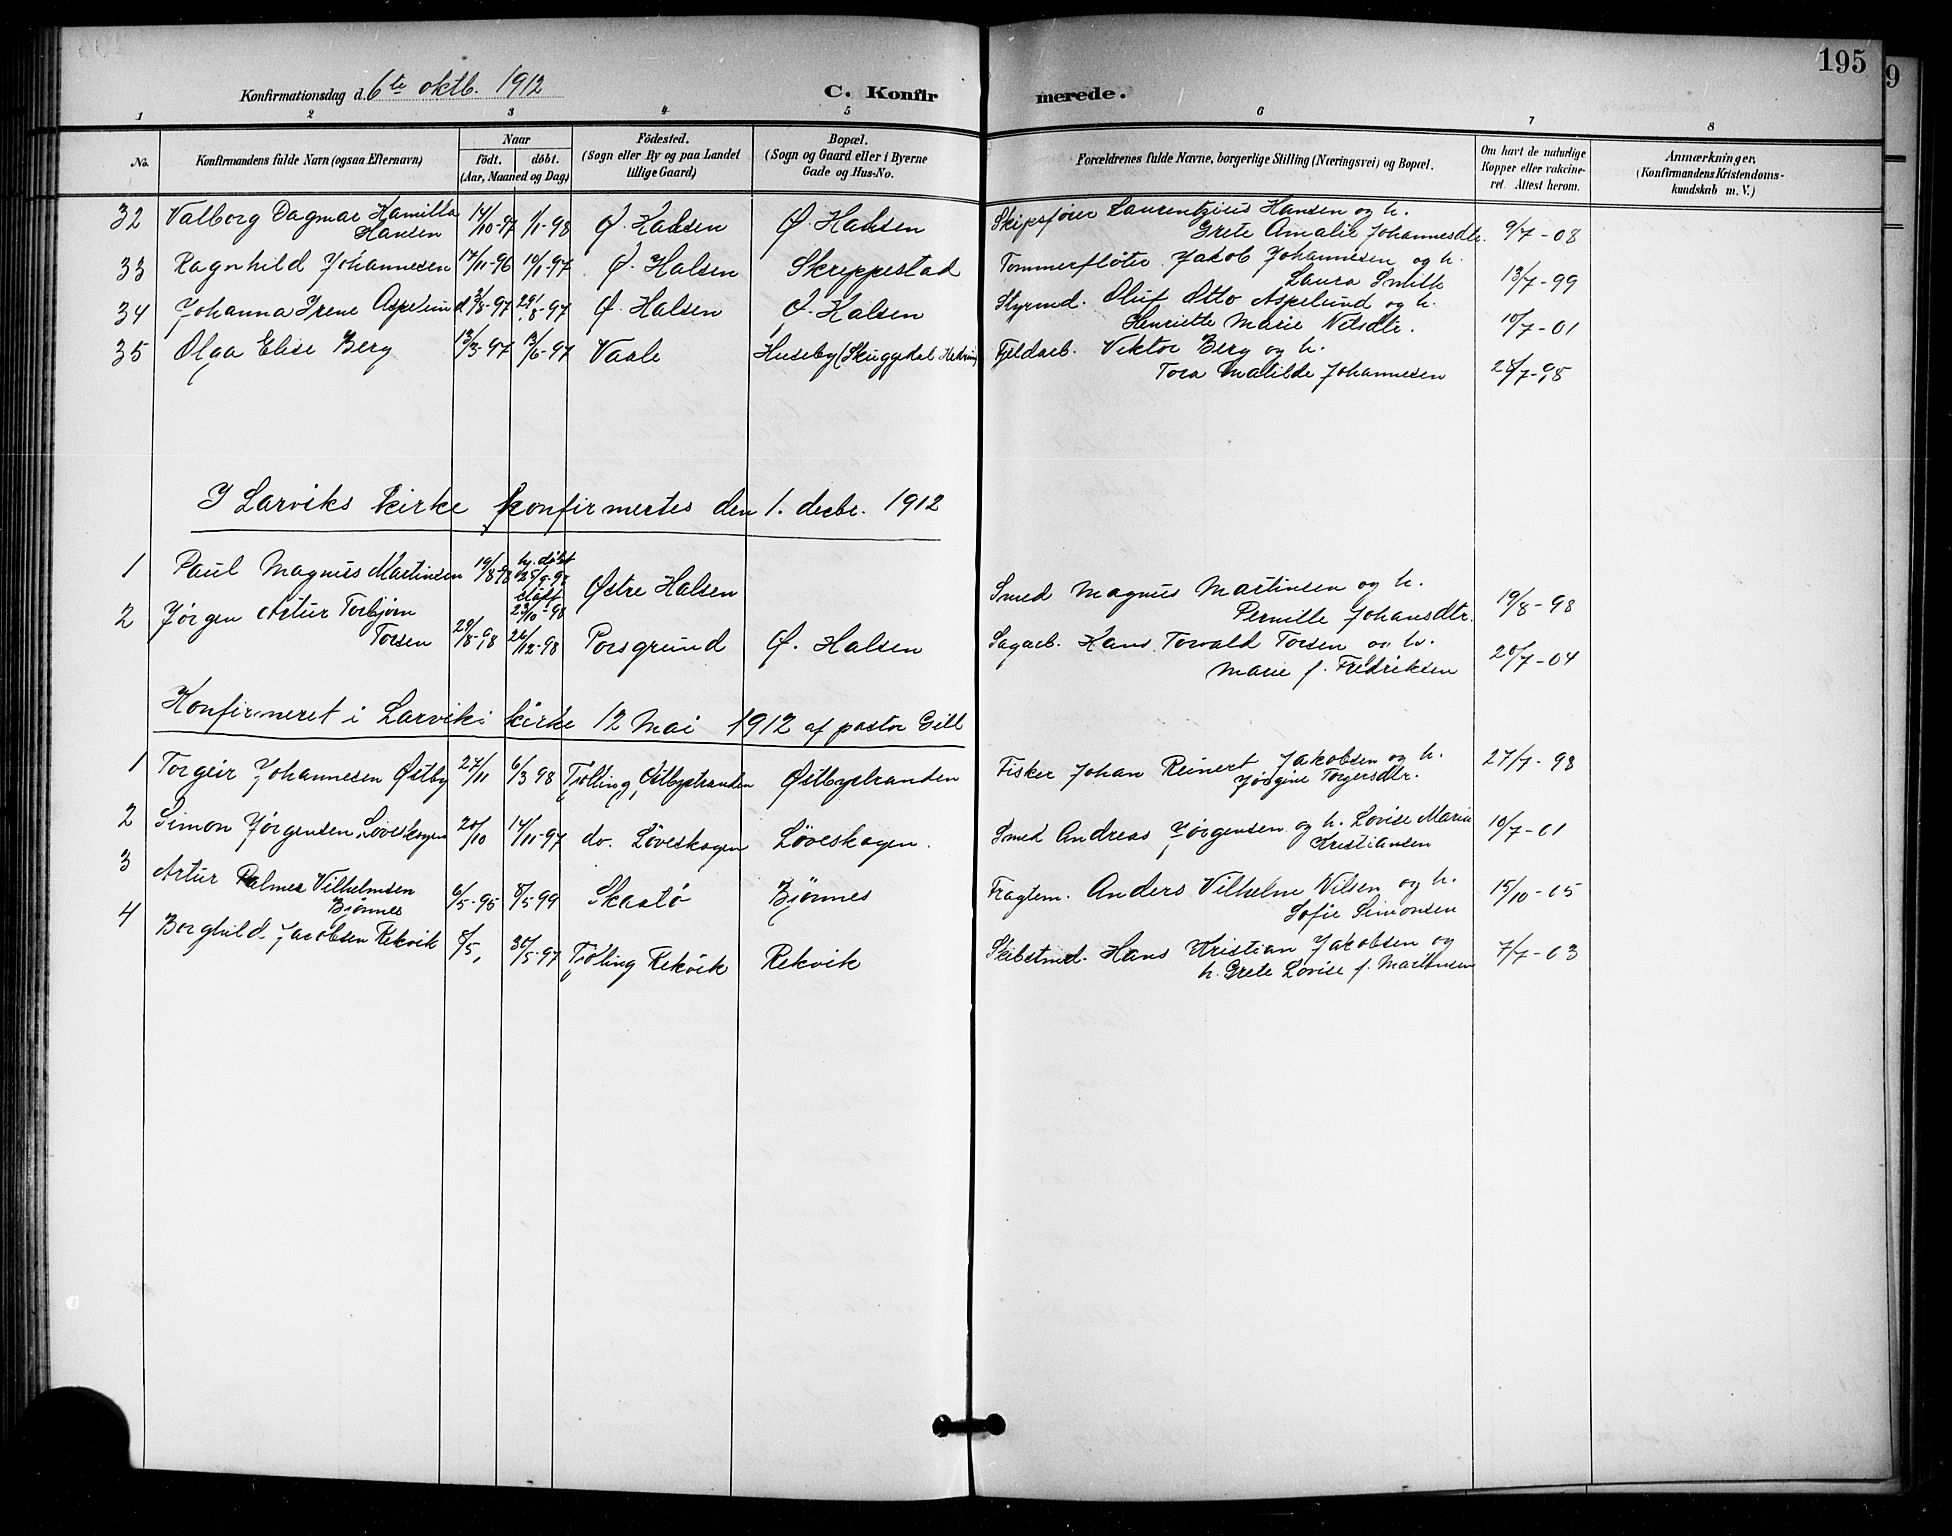 195
9
Konfirmationsdag d. 6te oktb. 1912
C. Konfirmerede.
1 2 3 4 5 6 7 8
No. Konfirmandens fulde Navn (ogsaa Efternavn) Naar födt. döbt. (Aar, Maaned og Dag) Födested. (Sogn eller By og paa Landet tillige Gaard) Bopæl. (Sogn og Gaard eller i Byerne Gade og Hus-No. Forældrenes fulde Navne, borgerlige Stilling (Næringsvei) og Bopæl. Om havt de naturlige Kopper eller vakcineret. Attest herom. Anmærkninger, (Konfirmandens Kristendomskundskab m. V.)
32 Valborg Dagmar Hamilla Hansen 14/10-97 1/1-98 Ø. Halsen Ø. Halsen Skipsfører Laurentzius Hansen og h. Grete Amalie Johannesdtr. 9/7-08
33 Ragnhild Johannesen 17/11-96 10/1-97 Ø. Halsen Skreppestad Tømmerfløter Jakob Johannesen og h. Laura Smith 13/7-99
34 Johanna Irene Aspelund 3/8-97 29/8-97 Ø. Halsen Ø. Halsen Styrmd. Oluf Otto Aspelund og h. Henriette Marie Nilsdtr. 10/7-01
35 Olga Elise Berg 13/3-97 13/6-97 Vaale Huseby (Skuggedal Hedrum) Fjeldarb. Viktor Berg og h. Tora Matilde Johannesen 28/7-98
I Larviks kirke konfirmertes den 1. decbr. 1912
1 Paul Magnus Martinsen 19/8-98 hj. døbt 25/9-98 stadf. 23/10-98 Østre Halsen Smed Magnus Martinsen og h. Pernille Johansdtr. 19/8-98
2 Jørgen Artur Torbjørn Torsen 29/8-98 26/12-98 Porsgrund Ø. Halsen Sagarb. Hans Torvald Torsen og h. Marie f. Fredriksen 20/7-04
Konfirmeret i Larviks kirke 12 Mai 1912 af pastor Gill
1 Torgeir Johannesen Østby 27/11 6/3 98 Tjølling, Østbystranden Østbystranden Fisker Johan Reinert Jakobsen og h. Jørgine Torgersdtr. 27/7-98
2 Simon Jørgensen Løveskogen 20/10 14/11-97 do. Løveskogen Løveskogen. Smed Andreas Jørgensen og h. Lovise Marie Kristiansen 10/7-01
3 Artur Palmer Vilhelmsen Bjønnes 6/5-96 8/5 99 Skaatø Bjønnes Fragtem. Anders Vilhelm Nilsen og h. Sofie Simonsen 15/10-05
4 Borghild Jacobsen Rekvik 8/5, 30/5-97 Tjølling Rekvik Rekvik Skibstmd. Hans Kristian Jakobsen og h. Grete Lovise f. Martinsen 7/7-03